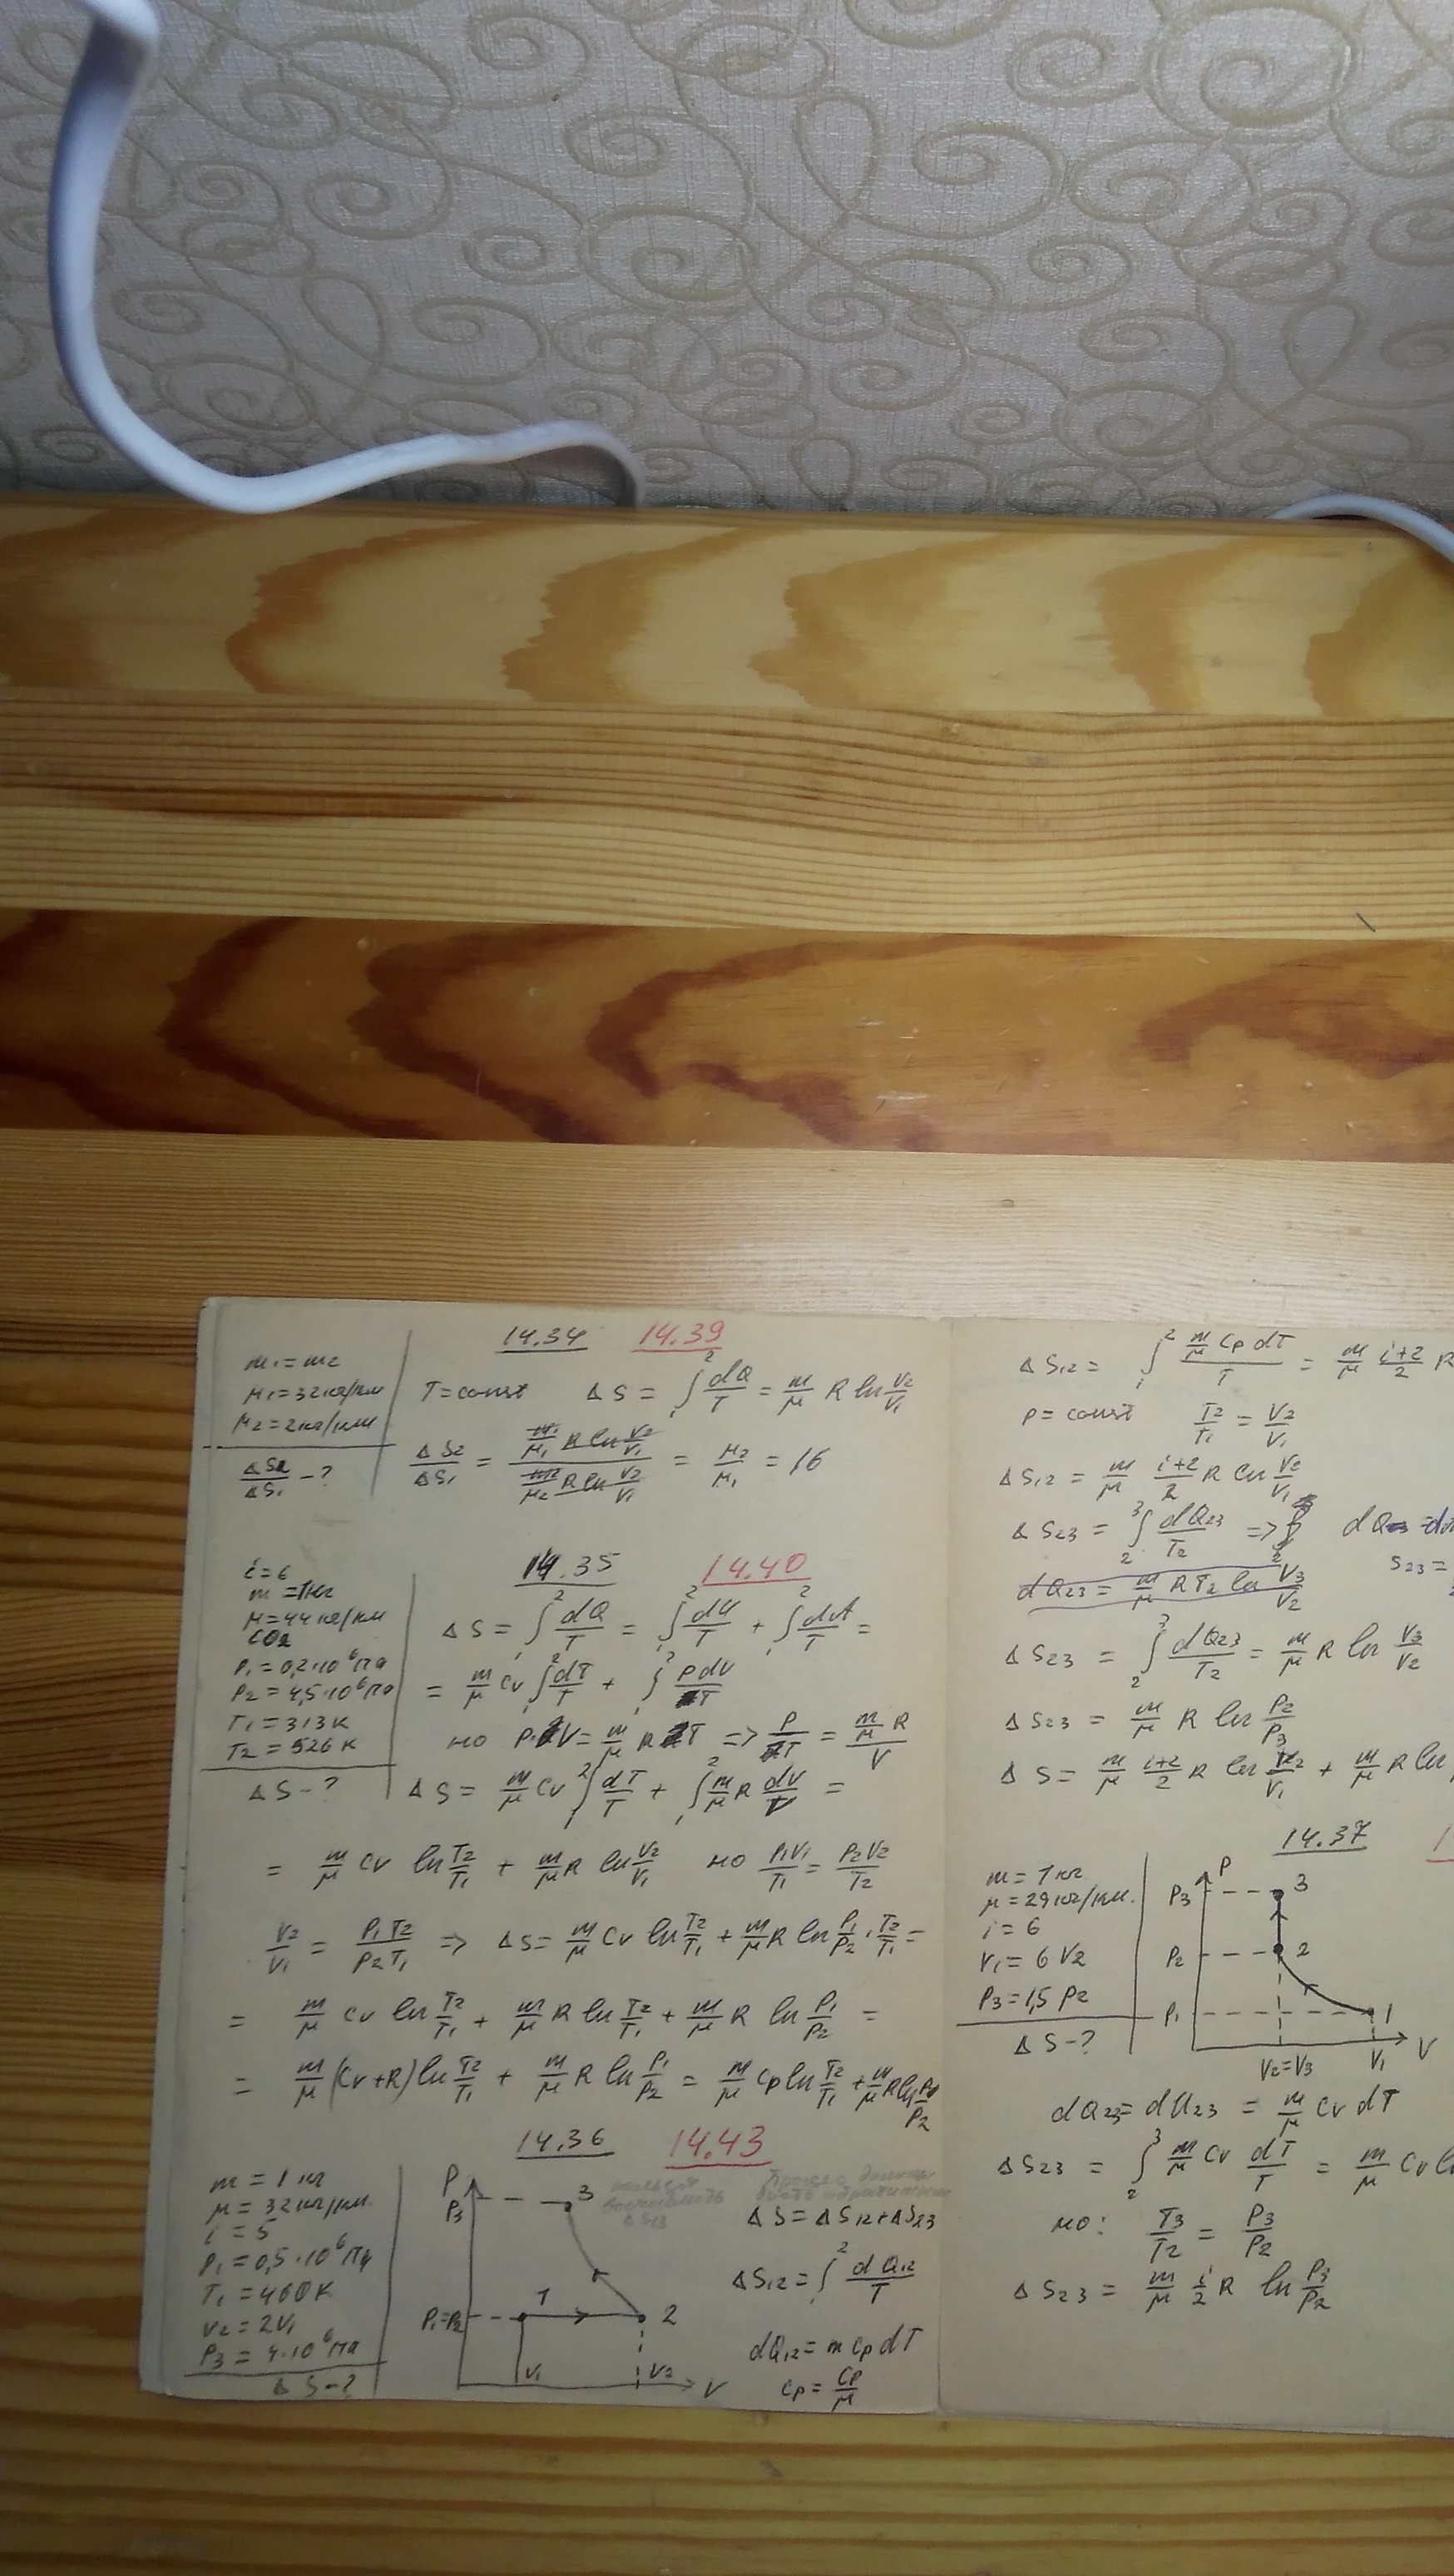 14.34 14.39
m₁ = m₂
μ₁ = 32кг/км
μ₂ = 2кг/км
ΔS₂/ΔS₁ - ?
T = const ΔS = ∫₁² dQ/T = m/μ R ln V₂/V₁
ΔS₂/ΔS₁ = (m₁/μ₁ R ln V₂/V₁)/(m₂/μ₂ R ln V₂/V₁) = μ₂/μ₁ = 16
14.35 14.40
i = 6
m = 1кг
μ = 44кг/км
CO₂
P₁ = 0,2·10⁶Па
P₂ = 4,5·10⁶Па
T₁ = 313К
T₂ = 526К
ΔS - ?
ΔS = ∫₁² dQ/T = ∫₁² dU/T + ∫₁² dA/T =
= m/μ Cv ∫₁² dT/T + ∫₁² pdV/T
но PV = m/μ RT => P/T = (m/μ R)/V
ΔS = m/μ Cv ∫₁² dT/T + ∫₁² m/μ R dV/V =
= m/μ Cv ln T₂/T₁ + m/μ R ln V₂/V₁ но P₁V₁/T₁ = P₂V₂/T₂
V₂/V₁ = P₁T₂/P₂T₁ => ΔS = m/μ Cv ln T₂/T₁ + m/μ R ln P₁/P₂ · T₂/T₁ =
= m/μ Cv ln T₂/T₁ + m/μ R ln T₂/T₁ + m/μ R ln P₁/P₂ =
= m/μ (Cv+R) ln T₂/T₁ + m/μ R ln P₁/P₂ = m/μ Cp ln T₂/T₁ + m/μ R ln P₁/P₂
14.36 14.43
m = 1кг
μ = 32кг/км
i = 5
P₁ = 0,5·10⁶Па
T₁ = 460К
V₂ = 2V₁
P₃ = 4·10⁶Па
ΔS - ?
P
P₃ 3
1
P₁=P₂ 2
V₁ V₂ V
ΔS₁₃
ΔS = ΔS₁₂+ΔS₂₃
ΔS₁₂ = ∫₁² dQ₁₂/T
dQ₁₂ = m cp dT
cp = Cp/μ
ΔS₁₂ = ∫₁² (m/μ Cp dT)/T = m/μ (i+2)/2 R
p = const T₂/T₁ = V₂/V₁
ΔS₁₂ = m/μ (i+2)/2 R ln V₂/V₁
ΔS₂₃ = ∫₂³ dQ₂₃/T₂ =>
S₂₃ =
dQ₂₃ = m/μ RT₂ ln V₃/V₂
ΔS₂₃ = ∫₂³ dQ₂₃/T₂ = m/μ R ln V₃/V₂
ΔS₂₃ = m/μ R ln P₂/P₃
ΔS = m/μ (i+2)/2 R ln V₂/V₁ + m/μ R ln
14.37
m = 1кг
μ = 29кг/км.
i = 6
V₁ = 6V₂
P₃ = 1,5P₂
ΔS - ?
P
P₃ 3
P₂ 2
P₁ 1
V₂=V₃ V₁ V
dQ₂₃ = dU₂₃ = m/μ Cv dT
ΔS₂₃ = ∫₂³ m/μ Cv dT/T = m/μ Cv ln
но: T₃/T₂ = P₃/P₂
ΔS₂₃ = m/μ i/2 R ln P₃/P₂